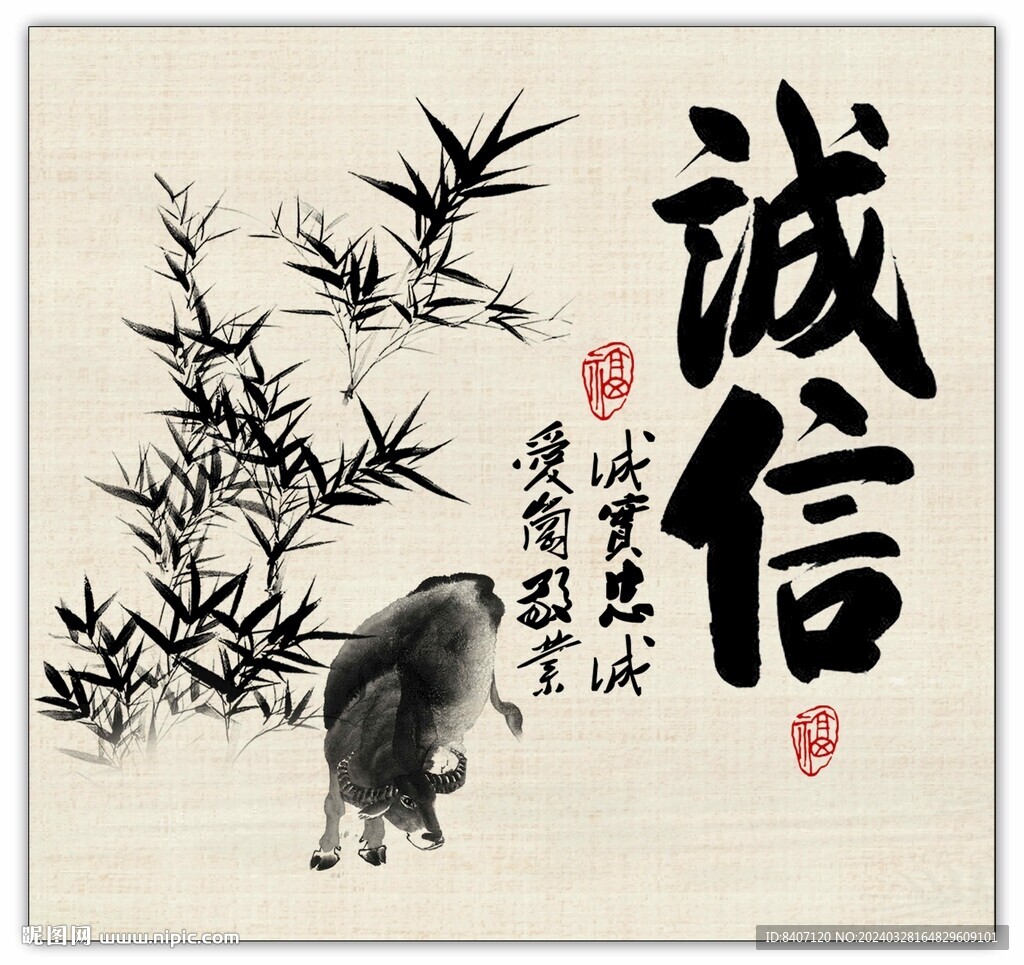 誠信
福
诚實忠诚
愛崗敬業
福
昵图网 www.nipic.com
ID:8407120 NO:20240328164829609101